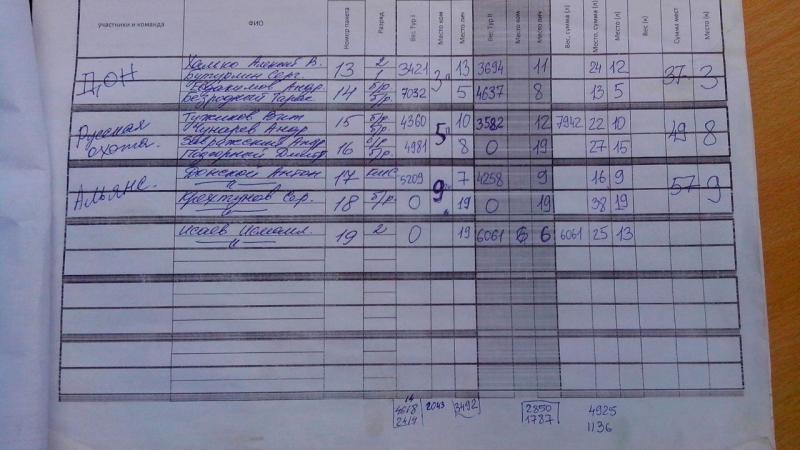 участники и команда ФИО Номер пакета Разряд Вес Тур I Место ком Место лич Вес Тур II Место ком Место лич Вес, сумма (л) Место, сумма (л) Место (л) Вес (к) Сумма мест Место (к)
Халько Алексей В. 13 2 3421 13 3694 11 24 12
ДОН Бутурлин Серг. 1 3 37 3
Андр. 14 б/р 7032 5 4637 8 13 5
Безродный Тарас б/р
Тужиков Вит 15 б/р 4360 10 3582 12 7942 22 10
Русская Чунарев Андр б/р 5 49 8
охота. Андр 16 б/р 4981 8 0 19 27 15
б/р
Донской Антон 17 КМС 5209 7 4258 9 16 9
Альянс. 9 57 9
Сер. 18 б/р. 0 19 0 19 38 19
Исаев Исмаил. 19 2 0 19 6061 6 6 6061 25 13
14
4618 2043 3492 2850 4925
2414 1787 1136